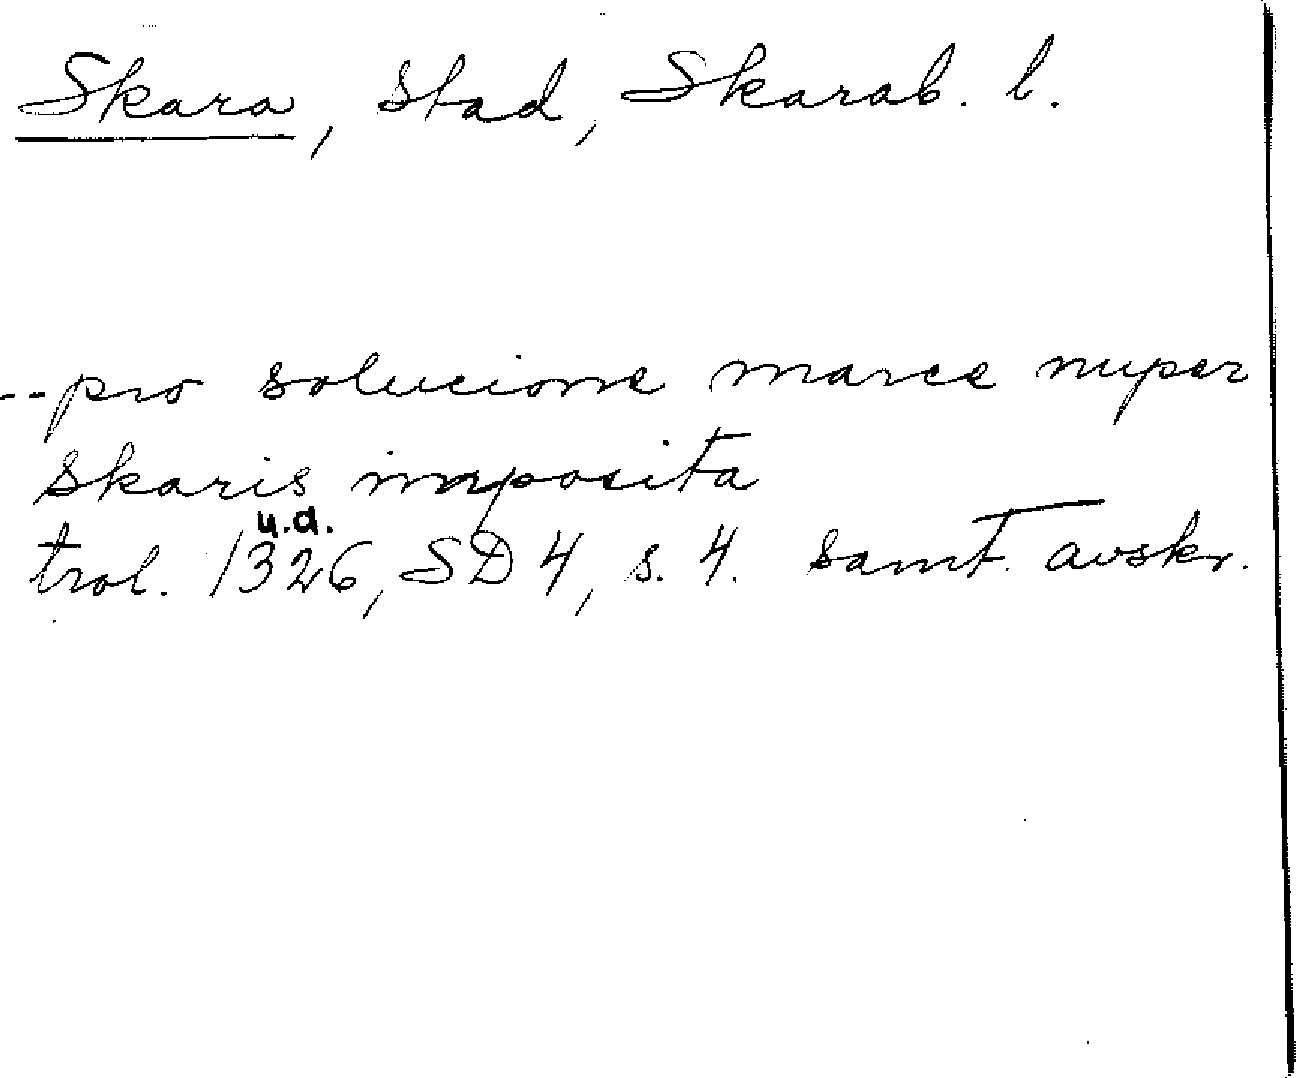 Skara, stad, Skarab. l.
--pro solucione marce nuper
skaris imposita
u.d.
trol. 1326, SD 4, s. 4. samt. avskr.